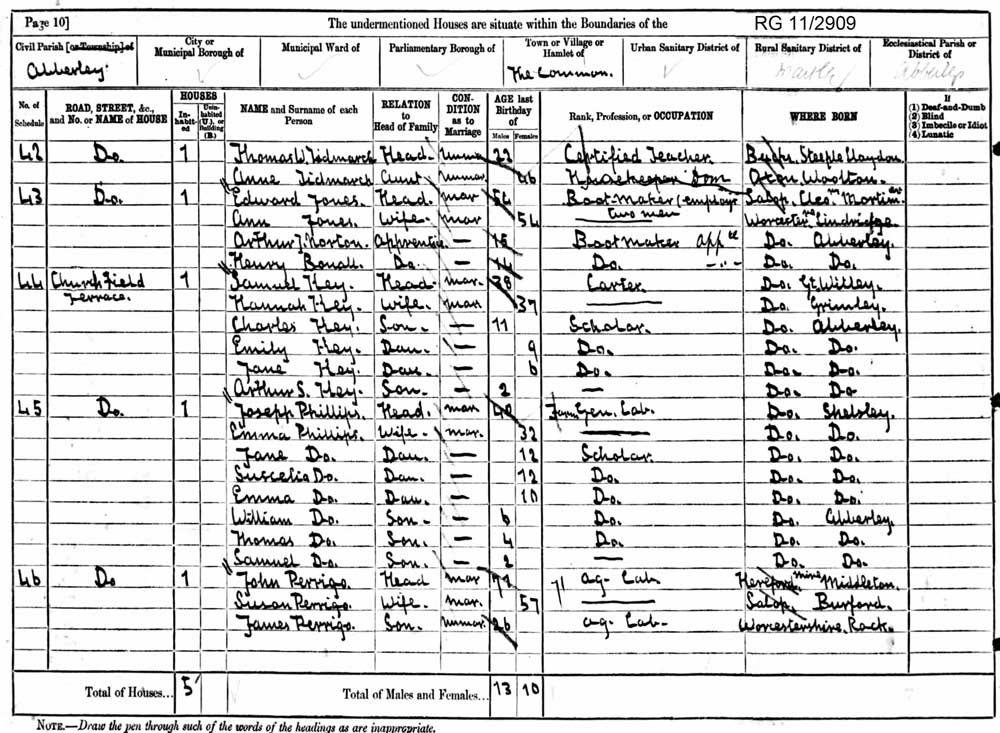 Page 10] The undermentioned Houses are situate within the Boundaries of the RG 11/2909
Civil Parish [or Township] of City or Municipal Borough of Municipal Ward of Parliamentary Borough of Town or Village or Hamlet of Urban Sanitary District of Rural Sanitary District of Ecclesiastical Parish or District of
Abberley. The Common. Martley Abberley
No. of Schedule ROAD, STREET, &c., and No. or NAME of HOUSE HOUSES In-habit-ed Unin-habited (U.), or Building (B.) NAME and Surname of each Person RELATION to Head of Family CON-DITION as to Marriage AGE last Birthday of Males Females Rank, Profession, or OCCUPATION WHERE BORN If (1) Deaf-and-Dumb (2) Blind (3) Imbecile or Idiot (4) Lunatic
42 Do. 1 Thomas W. Tidmarch Head. unmar 22 Certified Teacher. Bucks. Steeple Claydon.
Anne Tidmarch Aunt unmar. 46 Housekeeper Dom Oxon Woolton.
43 Do. 1 Edward Jones. Head. mar 54 Boot-Maker (employs two men Salop. Cleo. Mortimer
Ann Jones. Wife. mar 54 Worcester Lindridge.
Arthur J. Norton. Apprentice — 15 Bootmaker app Do. Abberley.
Henry Do. — 14 Do. Do. Do.
44 Church Field Terrace. 1 Samuel Hey. Head. mar. 38 Carter. Do. Gt. Witley.
Hannah Hey. Wife. mar. 37 Do. Grimley.
Charles Hey. Son. — 11 Scholar. Do. Abberley.
Emily Hey. Dau. — 9 Do. Do. Do.
Jane Hey. Dau. — 6 Do. Do. Do.
Arthur S. Hey. Son. — 2 — Do. Do
45 Do. 1 Joseph Phillips. Head. mar 40 Farm Gen. Lab. Do. Shelsley.
Emma Phillips. Wife. mar. 32 Do. Do.
Jane Do. Dau. — 12 Scholar. Do. Do.
Suscelia Do. Dau. — 12 Do. Do. Do.
Emma Do. Dau. — 10 Do. Do. Do.
William Do. Son. — 6 Do. Do. Abberley.
Thomas Do. Son. — 4 Do. Do. Do.
Samuel Do. Son. — 2 — Do. Do.
46 Do 1 John Perrigo. Head mar 72 ag. Lab Hereford Middleton.
Susan Perrigo. Wife. mar. 57 Salop. Burford.
James Perrigo. Son. unmar 26 ag. Lab. Worcestershire, Rock.
Total of Houses... 5 Total of Males and Females... 13 10
NOTE.—Draw the pen through such of the words of the headings as are inappropriate.